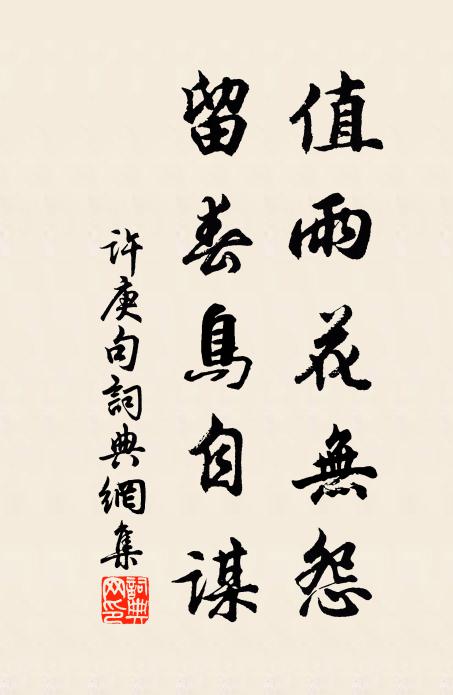 值雨花無怨
留春鳥自謀
許庚句詞典網集
詞典网印